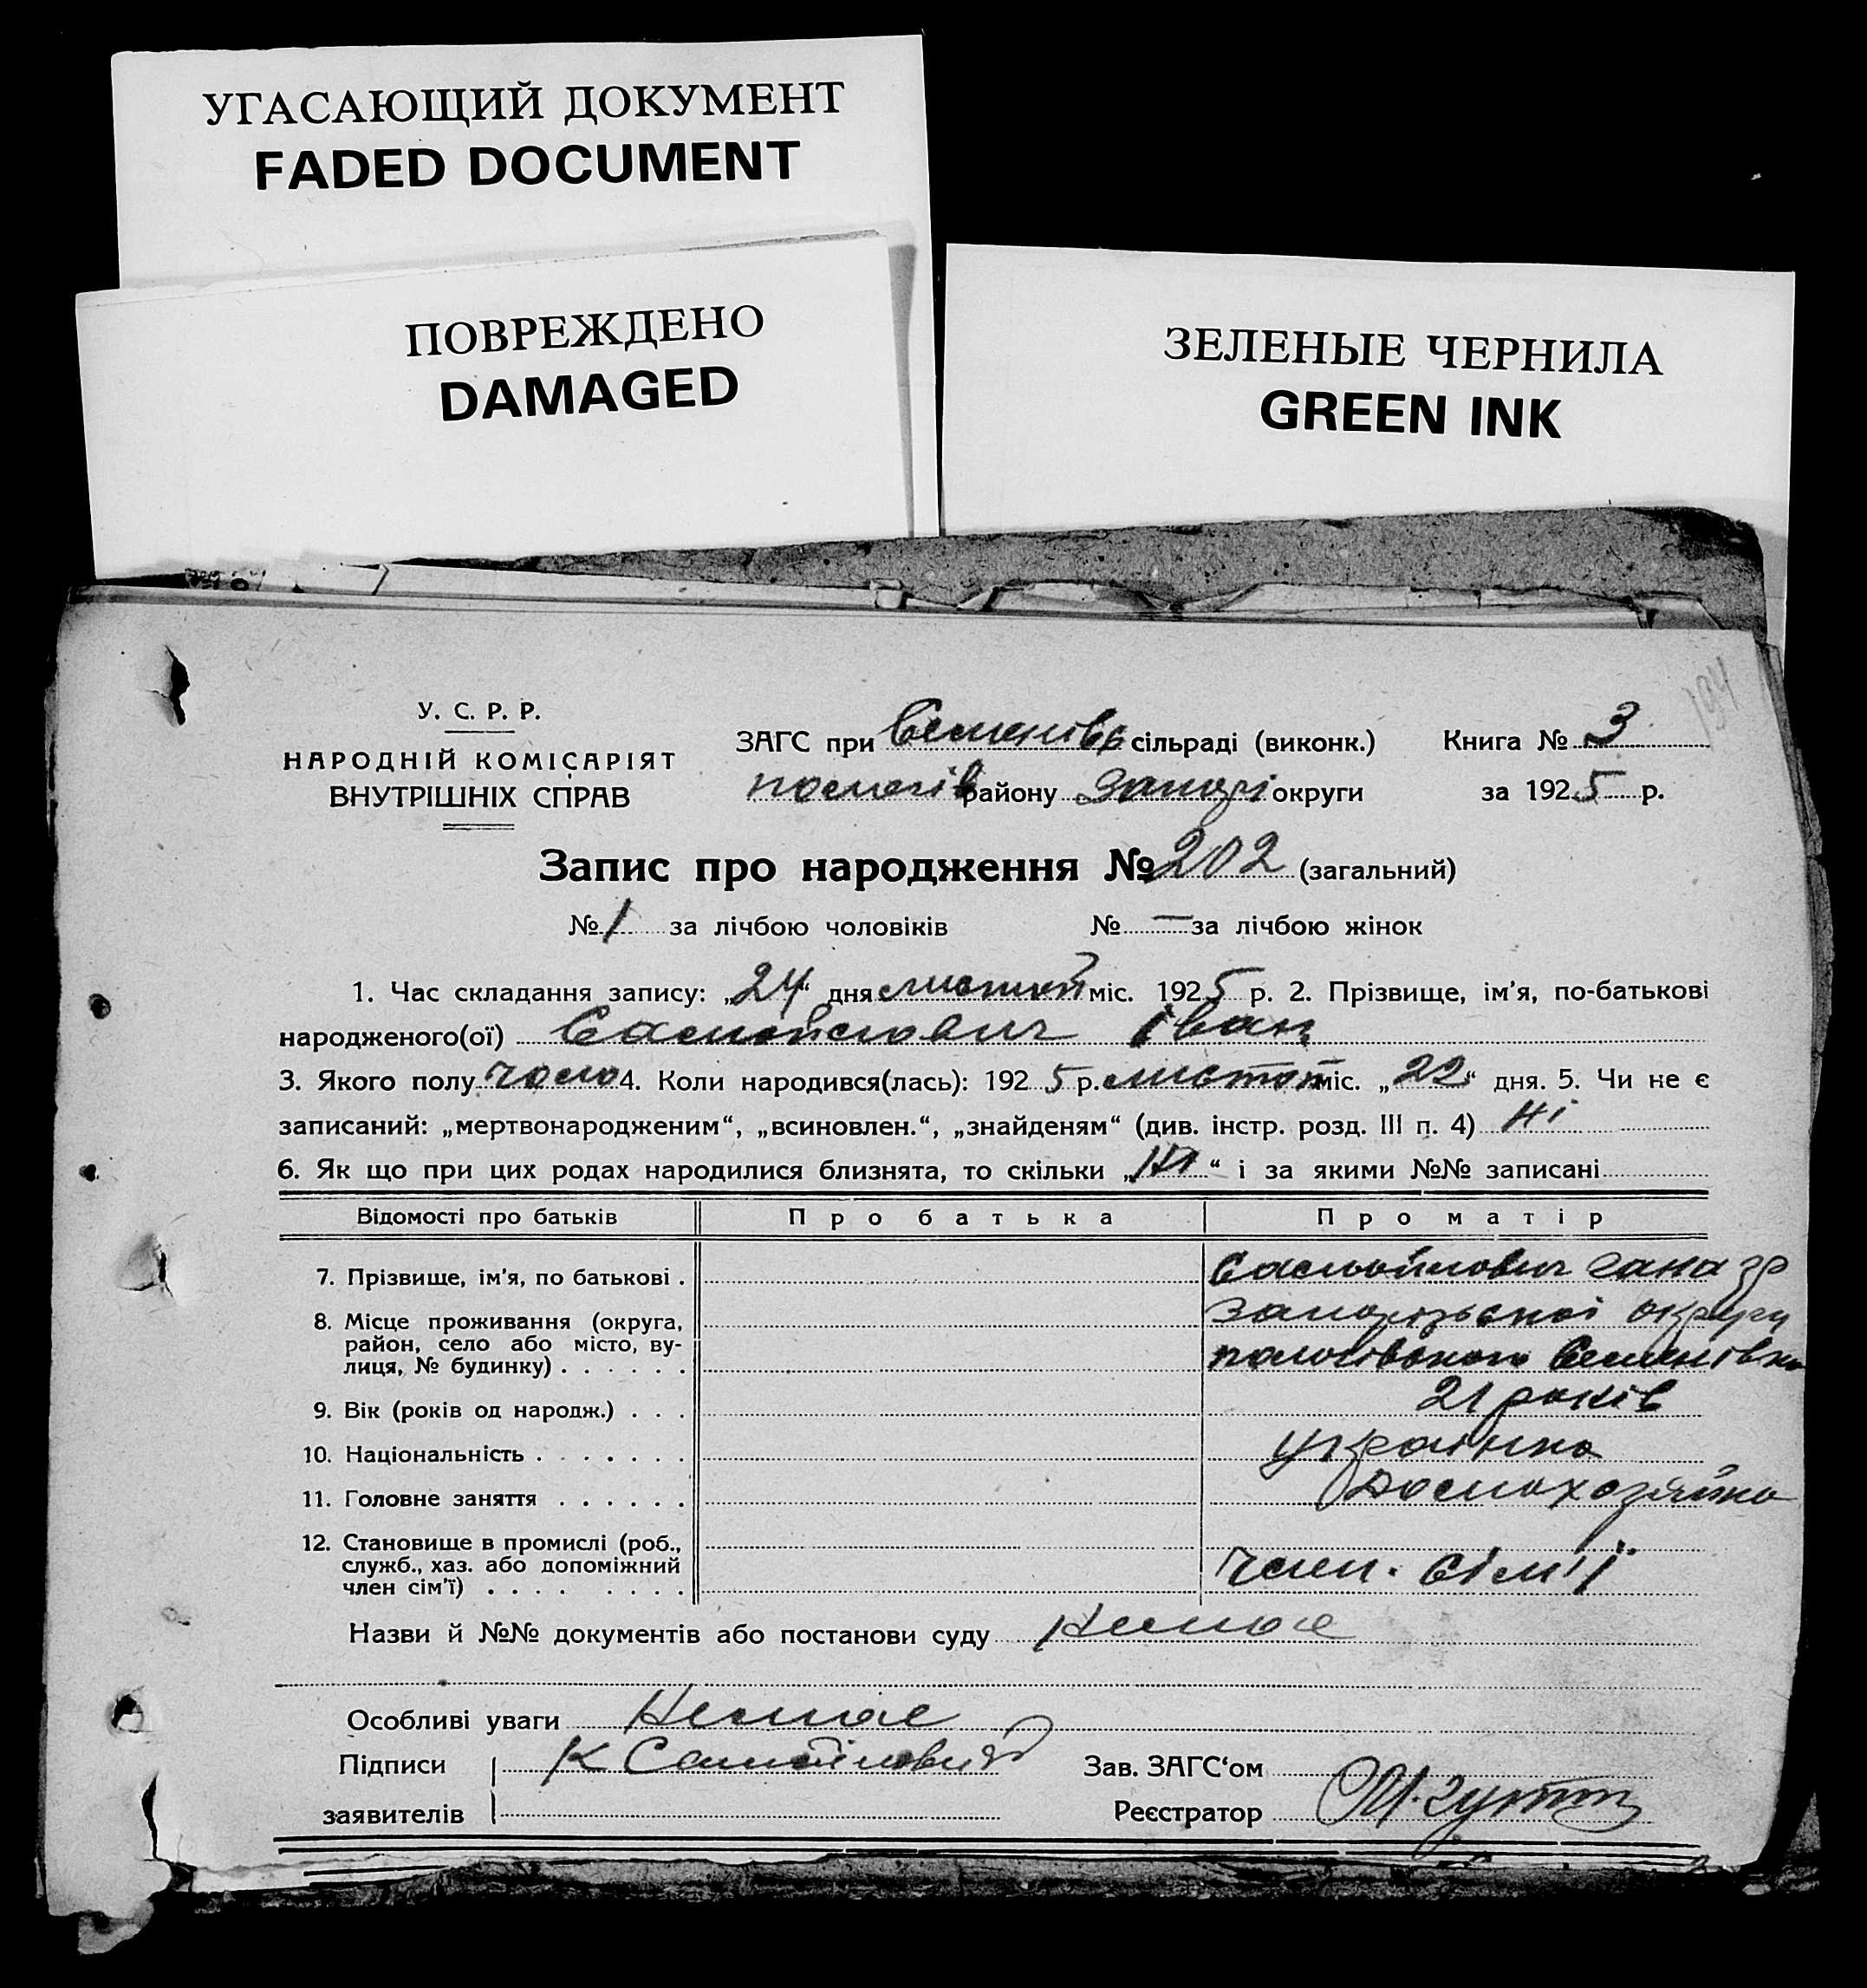 УГАСАЮЩИЙ ДОКУМЕНТ
FADED DOCUMENT
ПОВРЕЖДЕНО
DAMAGED
ЗЕЛЕНЫЕ ЧЕРНИЛА
GREEN INK
194
У. С. Р. Р.
НАРОДНІЙ КОМІСАРІЯТ
ВНУТРІШНІХ СПРАВ
ЗАГС при Семенівс сільраді (виконк.) Книга № 3
пологів району Запорі округи за 1925 р.
Запис про народження № 202 (загальний)
№ 1 за лічбою чоловіків № — за лічбою жінок
1. Час складання запису: „24“ дня листоп міс. 1925 р. 2. Прізвище, ім'я, по-батькові
народженого(ої) Самойлович Іван
3. Якого полу чоло 4. Коли народився(лась): 1925 р. листоп міс. „22“ дня. 5. Чи не є
записаний: „мертвонародженим“, „всиновлен.“, „знайденям“ (див. інстр. розд. III п. 4) Ні
6. Як що при цих родах народилися близнята, то скільки „Ні“ і за якими №№ записані
Відомості про батьків Про батька Про матір
7. Прізвище, ім'я, по батькові . Самойлович Гана
8. Місце проживання (округа, Запорізької округи
район, село або місто, ву- пологівського Семенівка
лиця, № будинку) . . . . . .
9. Вік (років од народж.) . . . 21 років
10. Національність . . . . . . . Українка
11. Головне заняття . . . . . . Домохозяйка
12. Становище в промислі (роб.,
служб., хаз. або допоміжний член. сімії
член сім'ї) . . . . . . . .
Назви й №№ документів або постанови суду Немає
Особливі уваги Немає
Підписи К Самойлович Зав. ЗАГС'ом
заявителів Реєстратор